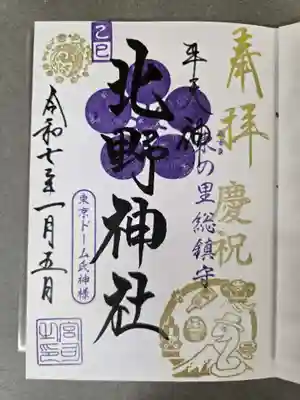 奉拝 慶祝
牛天神の里総鎮守
北野神社
乙巳
東京ドーム氏神様
令和七年一月五日
宮司之印